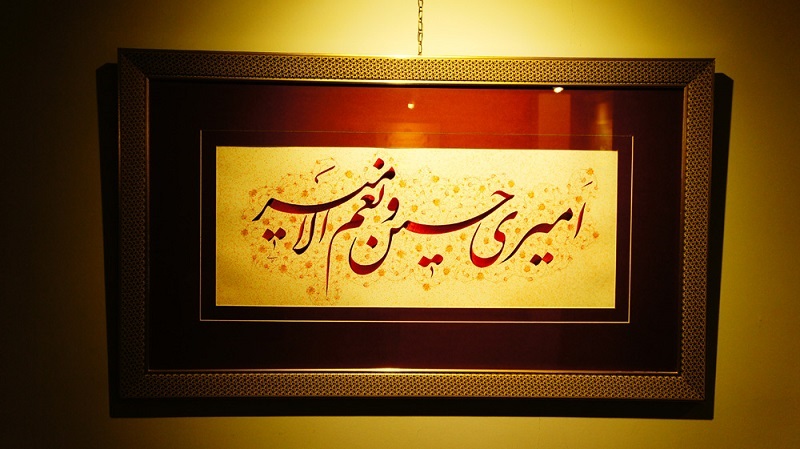 اَمیری حسین و نعم الامیر